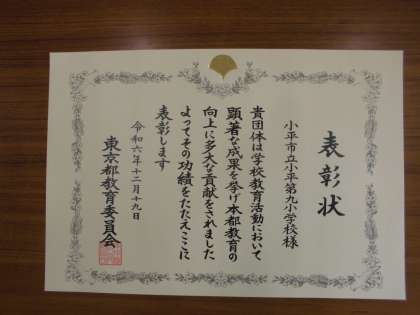 表彰状
小平市立小平第九小学校様
貴団体は学校教育活動において
顕著な成果を挙げ本都教育の
向上に多大な貢献をされました
よってその功績をたたえここに
表彰します
令和六年十二月十九日
東京都教育委員会